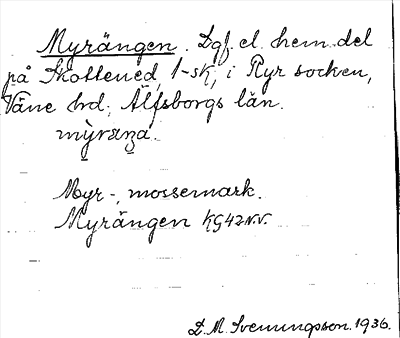 Myrängen. Lgf. el. hem.del
på Skottened, 1-sk, i Ryr socken,
Väne hd, Älfsborgs län.
mỳraŋa.
Myr-, mossemark.
Myrängen KG42N.V.
D. M. Svenungsson. 1936.